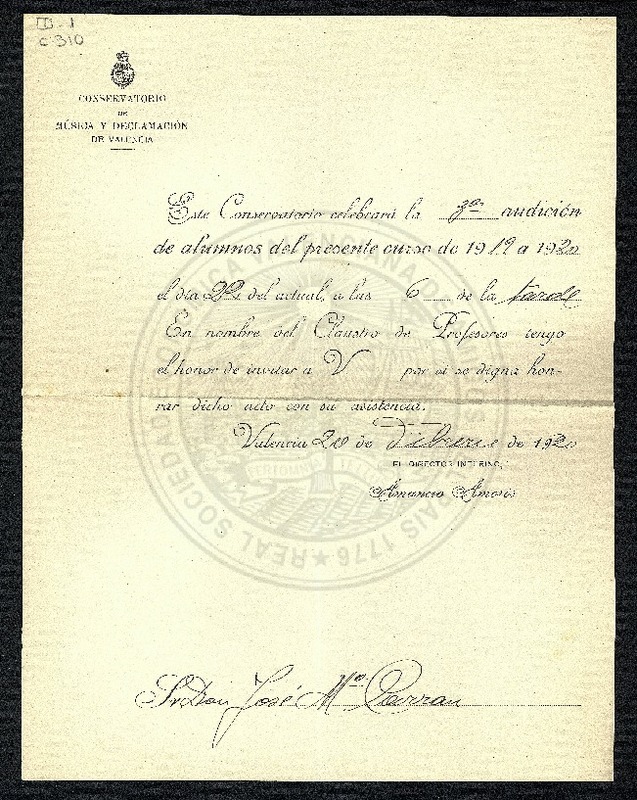 II-1
C 310
CONSERVATORIO
DE
MÚSICA Y DECLAMACIÓN
DE VALENCIA
Este Conservatorio celebrará la 3ª audición
de alumnos del presente curso de 1919 a 1920
el día 22 del actual, a las 6 de la tarde
En nombre del Claustro de Profesores tengo
el honor de invitar a V por si se digna hon-
rar dicho acto con su asistencia.
Valencia 20 de Febrero de 1920
EL DIRECTOR INTERINO,
Amancio Amorós
Sr Don José Mª
REAL SOCIEDAD PAIS 1776